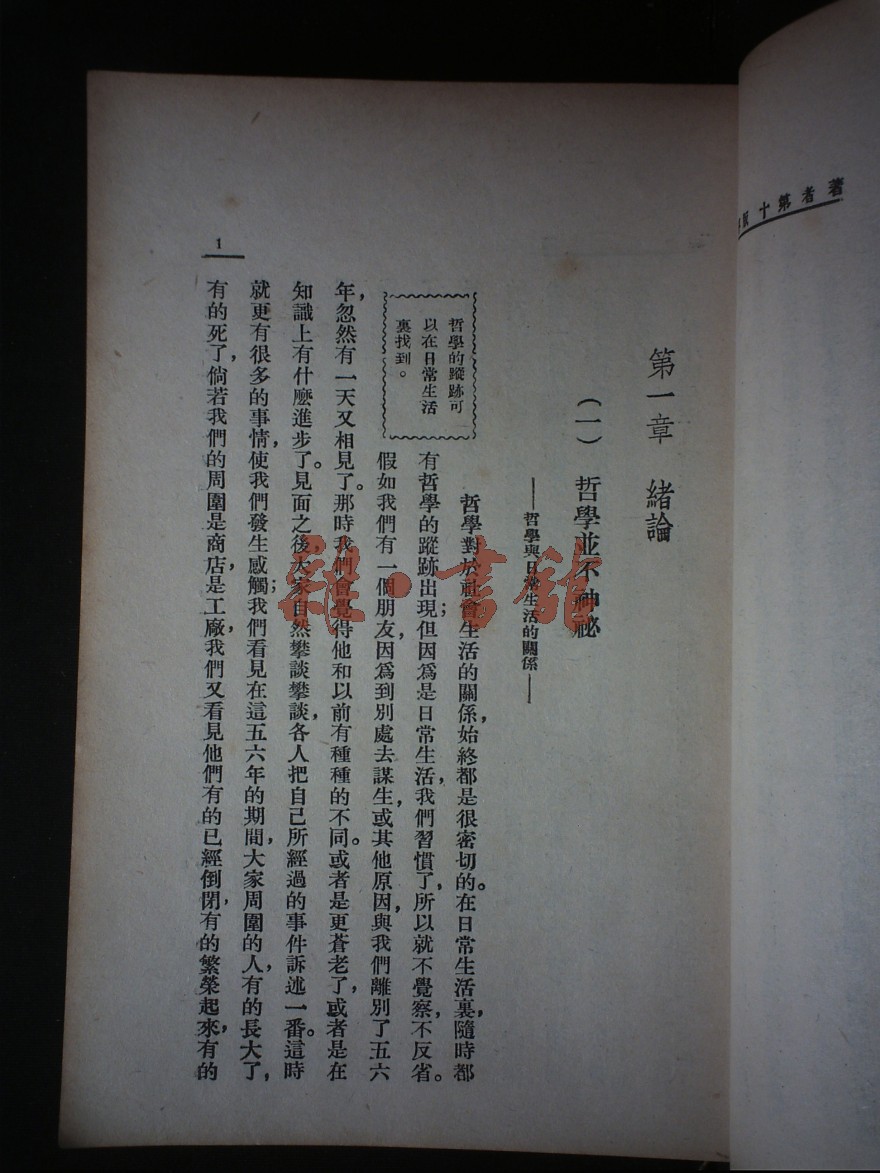 著者第十版
第一章　緒論
（一）　哲學並不神祕
——哲學與日常生活的關係——
哲學的蹤跡可
以在日常生活
裏找到。
哲學對於社會生活的關係，始終都是很密切的。在日常生活裏，隨時都
有哲學的蹤跡出現；但因爲是日常生活，我們習慣了，所以就不覺察，不反省。
假如我們有一個朋友，因爲到別處去謀生，或其他原因，與我們離別了五六
年，忽然有一天又相見了。那時我們會覺得他和以前有種種的不同。或者是更蒼老了，或者是在
知識上有什麼進步了。見面之後，大家自然攀談攀談，各人把自己所經過的事件訴述一番。這時
就更有很多的事情，使我們發生感觸；我們看見在這五六年的期間，大家周圍的人，有的長大了，
有的死了，倘若我們的周圍是商店，是工廠，我們又看見他們有的已經倒閉，有的繁榮起來，有的
1
羅·書館